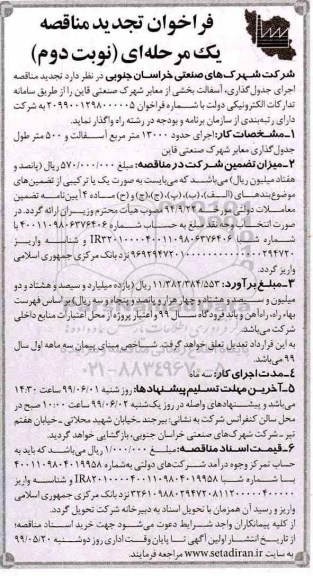 فراخوان تجدید مناقصه
یک مرحله‌ای (نوبت دوم)
شرکت شهرک‌های صنعتی خراسان جنوبی در نظر دارد تجدید مناقصه
اجرای جدول‌گذاری، آسفالت بخشی از معابر شهرک صنعتی قاین را از طریق سامانه
تدارکات الکترونیکی دولت با شماره فراخوان ۲۰۹۹۰۰۱۲۹۸۰۰۰۰۰۵ به شرکت
دارای رتبه‌بندی از سازمان برنامه و بودجه در رشته راه واگذار نماید.
۱ـ مشخصات کار: اجرای حدود ۱۳۰۰۰ متر مربع آسفالت و ۵۰۰ متر طول
جدول‌گذاری معابر شهرک صنعتی قاین
۲ـ میزان تضمین شرکت در مناقصه: مبلغ ۵۷۰/۰۰۰/۰۰۰ ریال (پانصد و
هفتاد میلیون ریال) می‌باشد که می‌بایست به صورت یک یا ترکیبی از تضمین‌های
موضوع بندهای (الف)، (ب)، (پ)، (ج)، (چ) و (ح) ماده ۴ آیین‌نامه تضمین
معاملات دولتی مورخ ۹۴/۹/۲۲ مصوب هیأت محترم وزیران ارائه گردد. در
صورت انتخاب وجه نقد مبلغ به حساب شماره ۴۰۰۱۱۰۹۸۰۶۳۷۶۴۰۶ با
شماره شبا و شناسه واریز
نزد بانک مرکزی جمهوری اسلامی
واریز گردد.
۳ـ مبلغ برآورد: ۱۱/۳۸۲/۳۸۴/۵۵۳ ریال (یازده میلیارد و سیصد و هشتاد و دو
میلیون و سیصد و هشتاد و چهار هزار و پانصد و پنجاه و سه ریال) بر اساس فهرست
بهاء راه، راه‌آهن و باند فرودگاه سال ۹۹ و اعتبار پروژه از محل اعتبارات منابع داخلی
شرکت می‌باشد.
به این قرارداد تعدیل تعلق خواهد گرفت. شاخص مبنای پیمان سه ماهه اول سال
۹۹ می‌باشد.
۴ـ مدت اجرای کار: سه ماه
۵ـ آخرین مهلت تسلیم پیشنهادها: روز شنبه ۹۹/۰۶/۰۱ ساعت ۱۴:۳۰
می‌باشد و پیشنهادهای واصله در روز یک‌شنبه ۹۹/۰۶/۰۲ ساعت ۱۰:۰۰ صبح در
محل سالن کنفرانس شرکت به نشانی: بیرجند ـ خیابان شهید محلاتی ـ خیابان هفتم
تیر ـ شرکت شهرک‌های صنعتی خراسان جنوبی، بازگشایی خواهد گردید.
۶ـ قیمت اسناد مناقصه: مبلغ ۱/۰۰۰/۰۰۰ ریال می‌باشد که باید به
حساب تمرکز وجوه درآمد شرکت‌های دولتی به شماره ۴۰۰۱۱۰۹۸۰۴۰۱۹۹۵۸
با شماره شبا و شناسه واریز
نزد بانک مرکزی جمهوری اسلامی
واریز و رسید آن همزمان با تحویل اسناد به دبیرخانه شرکت تحویل گردد.
از کلیه پیمانکاران واجد شرایط دعوت می‌شود جهت خرید اسناد مناقصه؛
از تاریخ انتشار اولین آگهی تا پایان وقت اداری روز دوشنبه ۹۹/۰۵/۲۰
به سایت www.setadiran.ir مراجعه فرمایند.